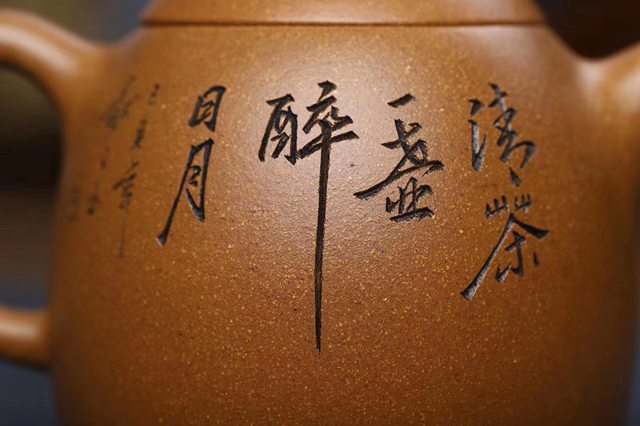 清茶
一壶
醉
日月